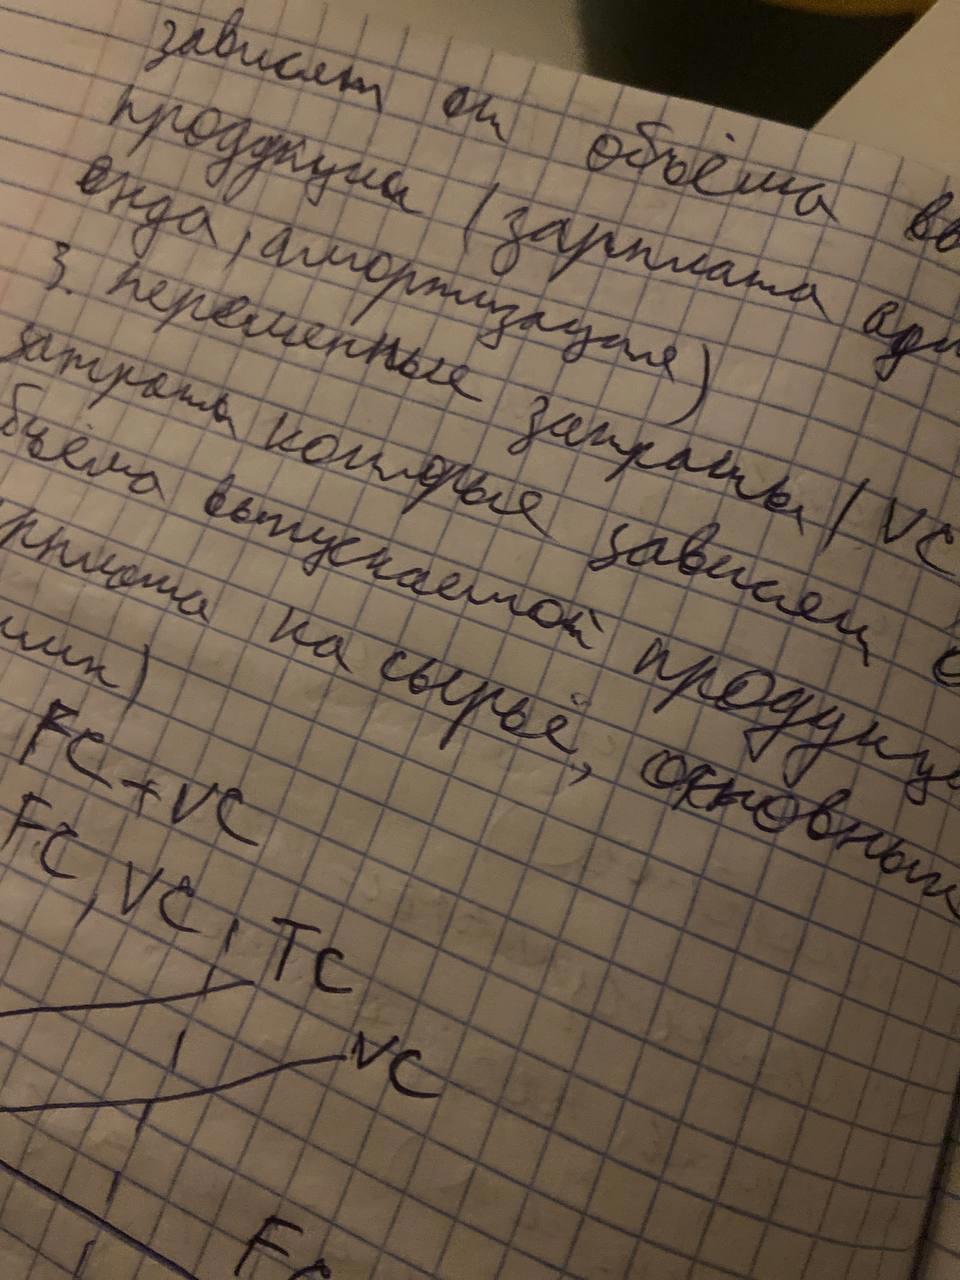 зависят от объёма
продукции (зарплата
енда, амортизация)
3. переменные затраты (VC
затраты которые зависят
бъёма выпускаемой продукци
рплата на сырьё, основных
FC+VC
FC, VC, TC
VC
FC